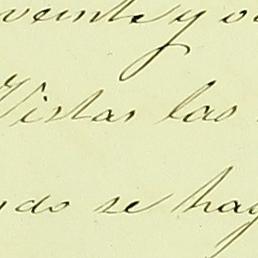 veinte y o
Vistas las
ydo se hag